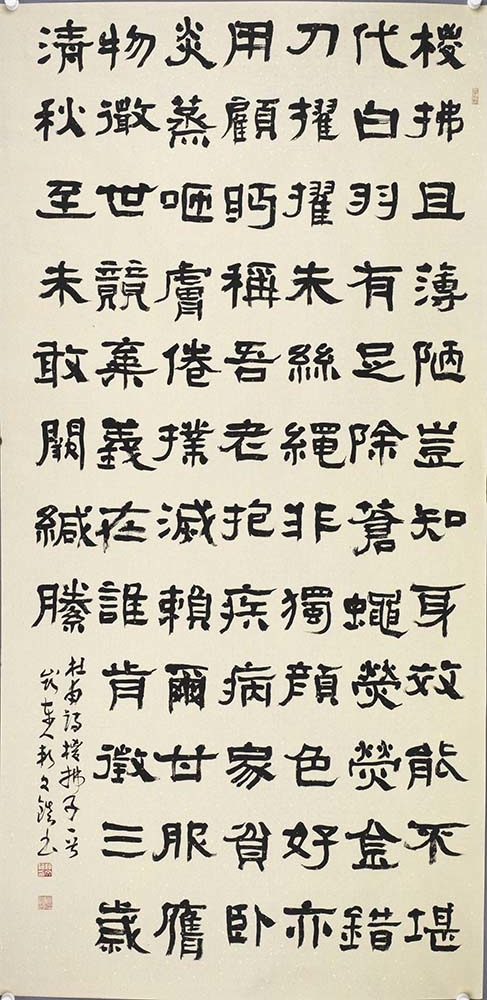 椶拂且薄陋豈知身效能不堪
代白羽有足除蒼蠅熒熒金錯
刀擢擢朱絲繩非獨顏色好亦
用顧眄稱吾老抱疾病家貧卧
炎蒸咂膚倦撲滅賴爾甘服膺
物微世競棄義在誰肯徵三歲
清秋至未敢闕緘縢
杜甫詩椶拂子一首
文書